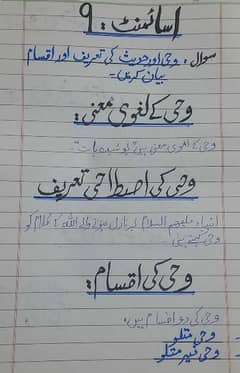 اسائنمنٹ: ۹
سوال: وحی اور حدیث کی تعریف اور اقسام
بیان کریں۔
وحی کے لغوی معنی:
وحی کے لغوی معنی ہیں پوشیدہ بات۔
وحی کی اصطلاحی تعریف
انبیاء علیہم السلام پر نازل ہونے والے اللہ کے کلام کو
وحی کہتے ہیں۔
وحی کی اقسام:
وحی کی دو اقسام ہیں۔
وحی متلو
وحی غیر متلو